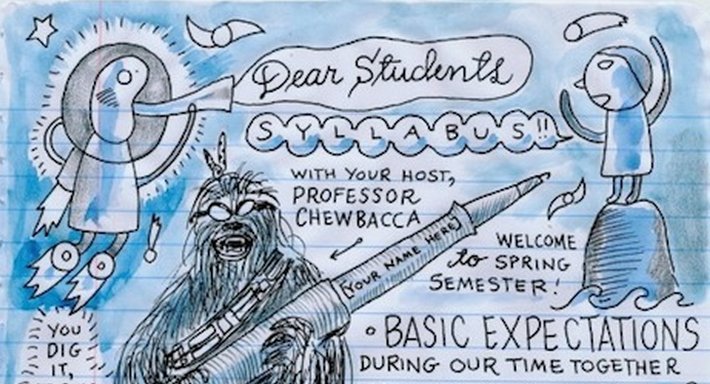 Dear Students
SYLLABUS!!
WITH YOUR HOST,
PROFESSOR
CHEWBACCA
YOUR NAME HERE
WELCOME
to SPRING
SEMESTER!
• BASIC EXPECTATIONS
DURING OUR TIME TOGETHER
YOU
DIG
IT,